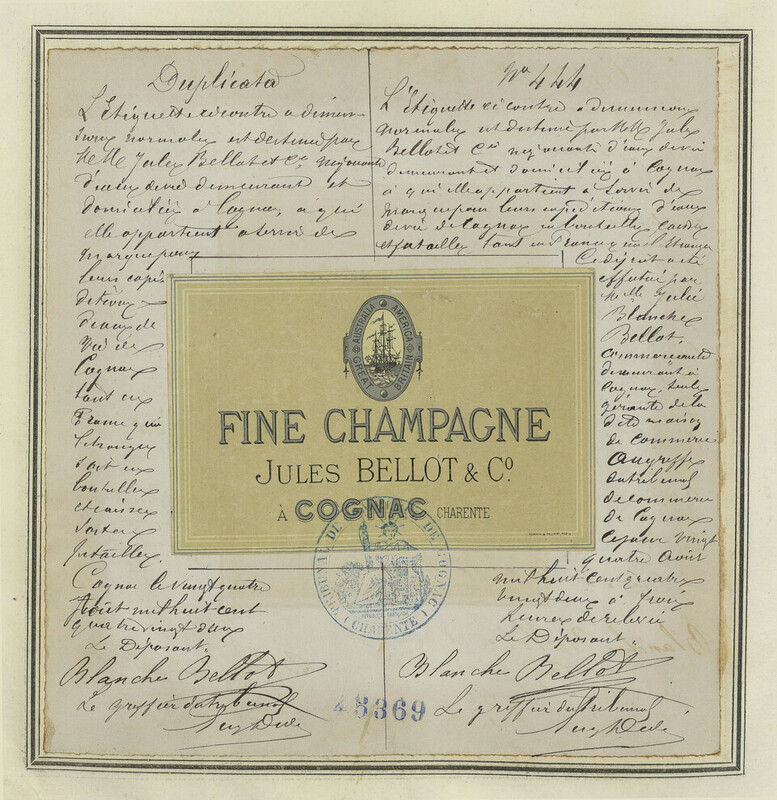 Duplicata
L'Etiquette ci contre a dimen-
sions normales est destinée par
MM Jules Bellot et Cie négociants
d'eaux de vie demeurant et
domiciliés à Cognac, a qui
elle appartient a servir de
marque pour
leurs expé
ditions
d'eaux de
vie de
Cognac
tant en
France qu'à
l'étranger
soit en
bouteilles
et caisses
soit en
futailles.
Cognac le vingt quatre
Août mil huit cent
quatre vingt deux
Le Déposant.
Blanche Bellot
Le greffier du tribunal
No 444
L'étiquette ci contre a dimensions
normales est destinée par MM Jules
Bellot et Cie négociants d'eaux de vie
demeurant et domiciliés à Cognac
à qui elle appartient a servir de
marque pour leurs expéditions d'eaux
de vie de Cognac en bouteilles, caisses
et futailles tant en France qu'à l'étranger
Ce dépôt a été
effectué par
Melle Julie
Blanche
Bellot,
commerçante
demeurant à
Cognac, seule
gérante de la
dite maison
de commerce
au greffe
du tribunal
de commerce
de Cognac
ce jour vingt
quatre Août
mil huit cent quatre
vingt deux à trois
heures de relevée
Le Déposant.
Blanche Bellot
Le greffier du Tribunal
AUSTRALIA AMERICA
GREAT BRITAIN
FINE CHAMPAGNE
JULES BELLOT & Co.
À COGNAC CHARENTE
TRIBUNAL DE DE COGNAC
(CHARENTE)
48369